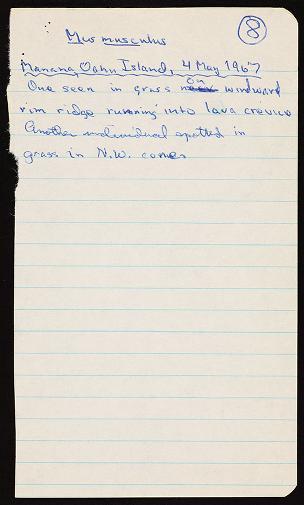 8
Mus musculus
Manana, Oahu Island, 4 May 1967
One seen in grass on windward
rim ridge running into lava crevice
Another individual spotted in
grass in N.W. corner